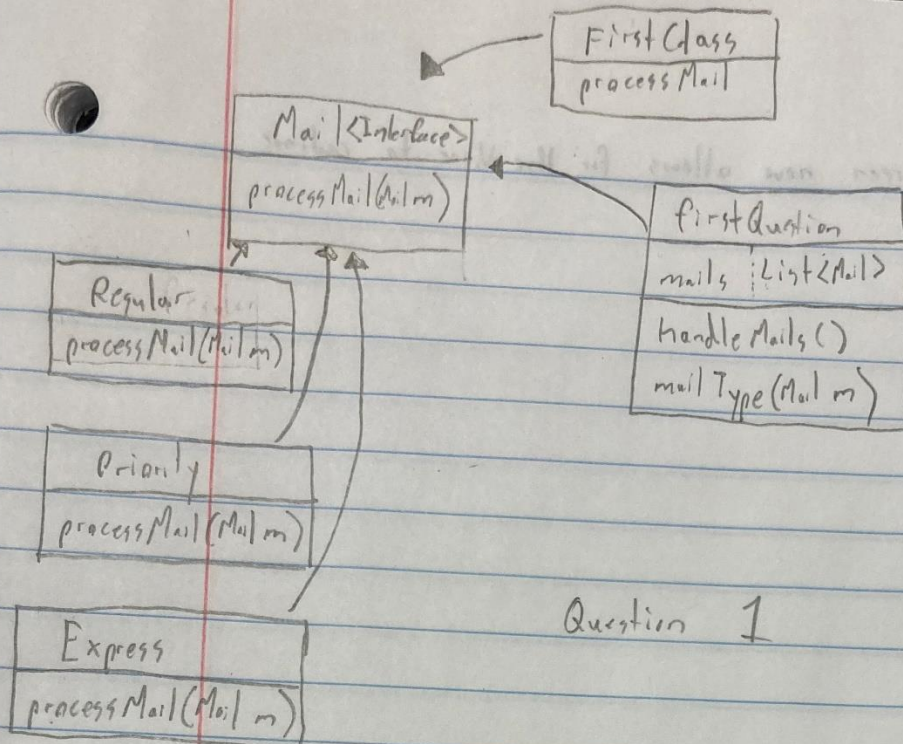 FirstClass
processMail
Mail <Interface>
processMail(Mail m)
firstQuestion
mails : List<Mail>
handleMails()
mailType(Mail m)
Regular
processMail(Mail m)
Priority
processMail(Mail m)
Express
processMail(Mail m)
Question 1